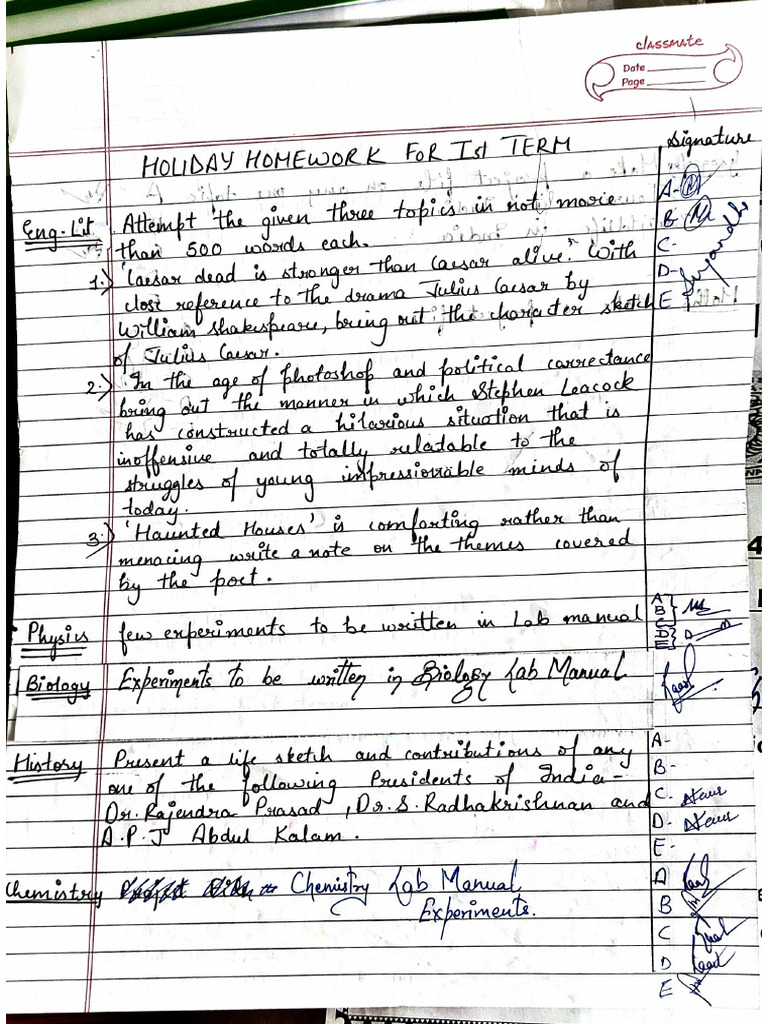 classmate
Date
Page
HOLIDAY HOMEWORK FOR Ist TERM
Signature
Eng-Lit. Attempt the given three topics in not more
than 500 words each.
1.) 'Caesar dead is stronger than Caesar alive.' With
close reference to the drama Julius Caesar by
William Shakespeare, bring out the character sketch
of Julius Caesar.
2.) In the age of photoshop and political correctance
bring out the manner in which Stephen Leacock
has constructed a hilarious situation that is
inoffensive and totally relatable to the
struggles of young impressionable minds of
today.
3.) 'Haunted Houses' is comforting rather than
menacing write a note on the themes covered
by the poet.
A-
B-
C-
D-
E
Physics few experiments to be written in Lab manual
A
B
C
D
E
Biology Experiments to be written in Biology Lab Manual
History Present a life sketch and contributions of any
one of the following Presidents of India-
Dr. Rajendra Prasad, Dr. S. Radhakrishnan and
A.P.J Abdul Kalam.
A-
B-
C-
D-
E-
Chemistry Chemistry Lab Manual
Experiments.
A
B
C
D
E